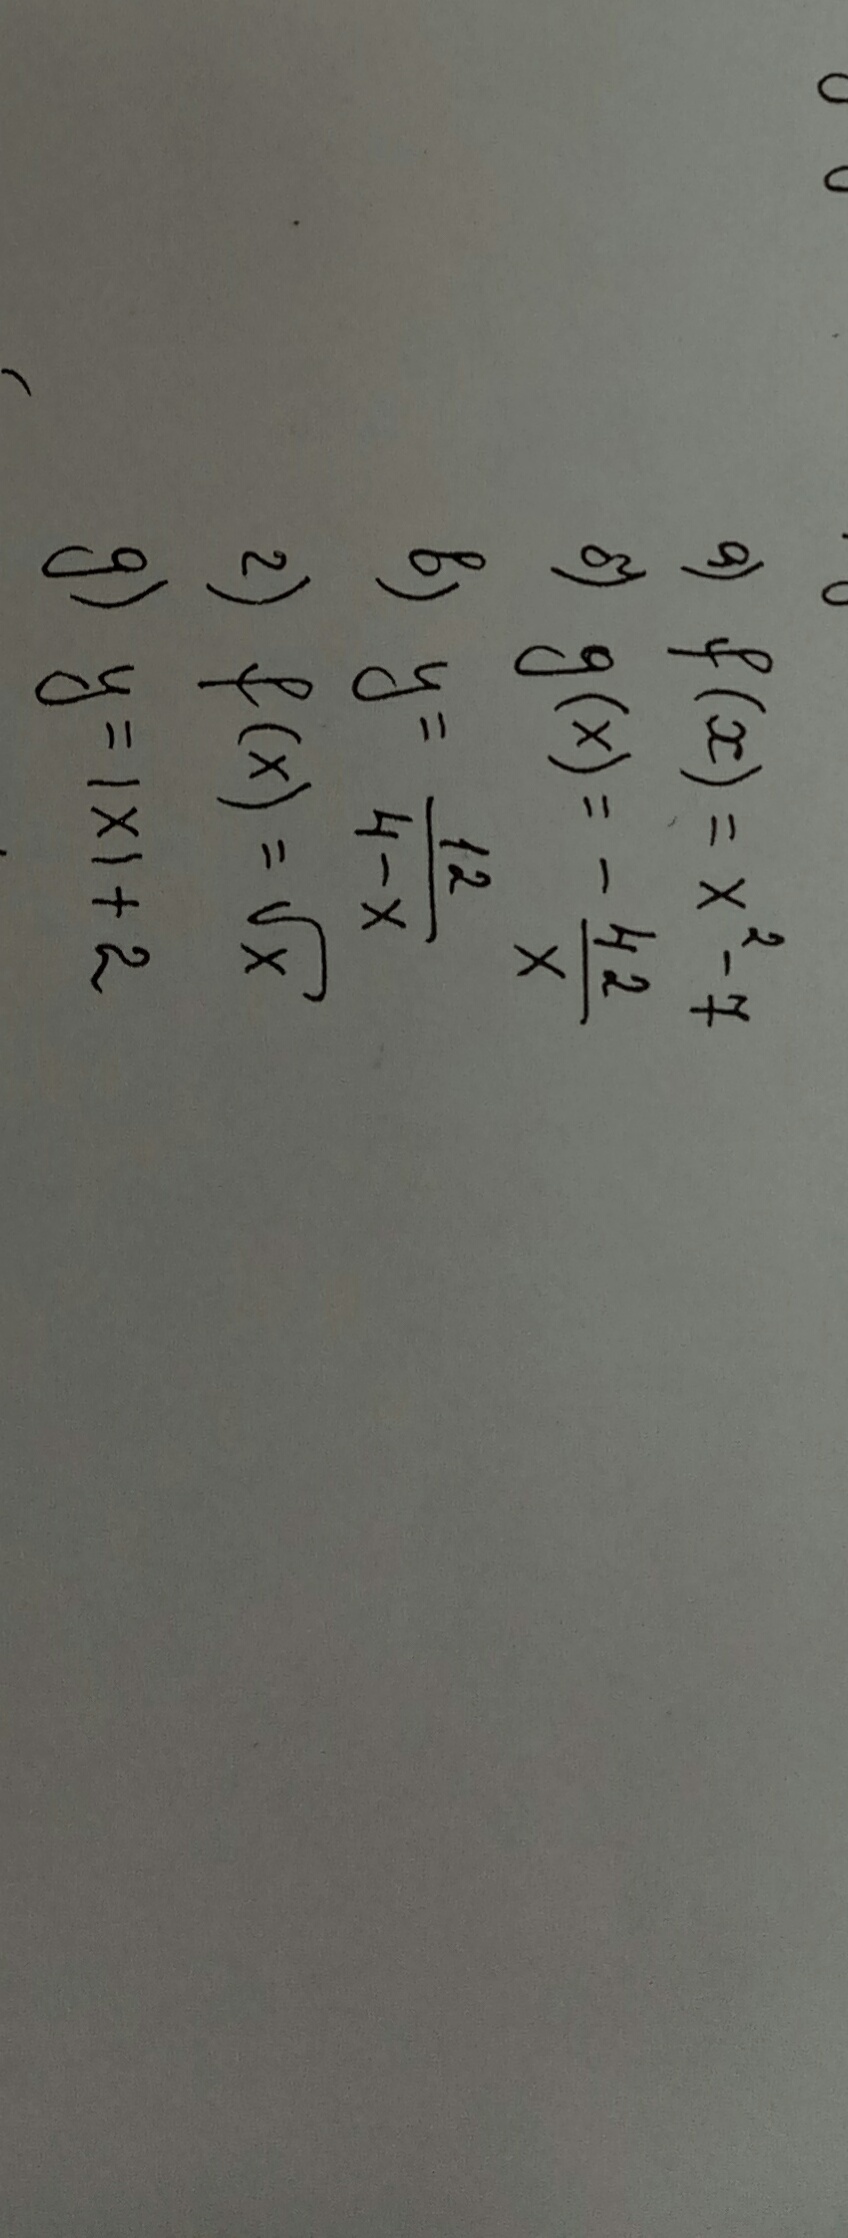 а) f(x) = x² - 7
б) g(x) = - 42/x
в) y = 12/(4-x)
г) f(x) = √x
д) y = |x| + 2